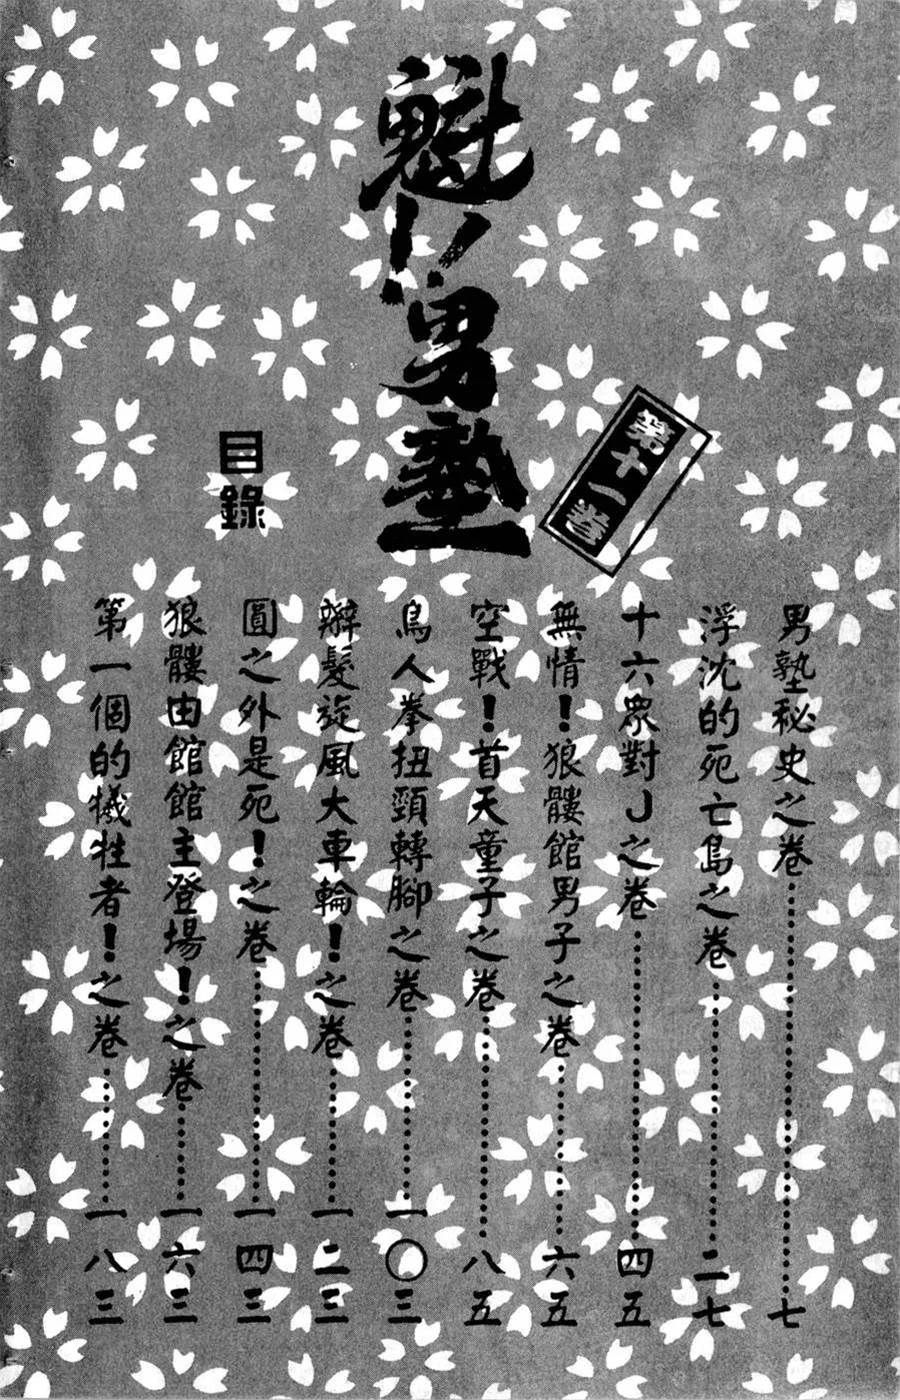 魁!!男塾
第十二卷
目錄
男塾秘史之卷……七
浮沈的死亡島之卷……二七
十六眾對J之卷……四五
無情!狼髏館男子之卷……六五
空戰!首天童子之卷……八五
鳥人拳扭頸轉腳之卷……一〇三
辮髮旋風大車輪!之卷……一二三
圓之外是死!之卷……一四三
狼髏由館館主登場!之卷……一六三
第一個的犧牲者!之卷……一八三